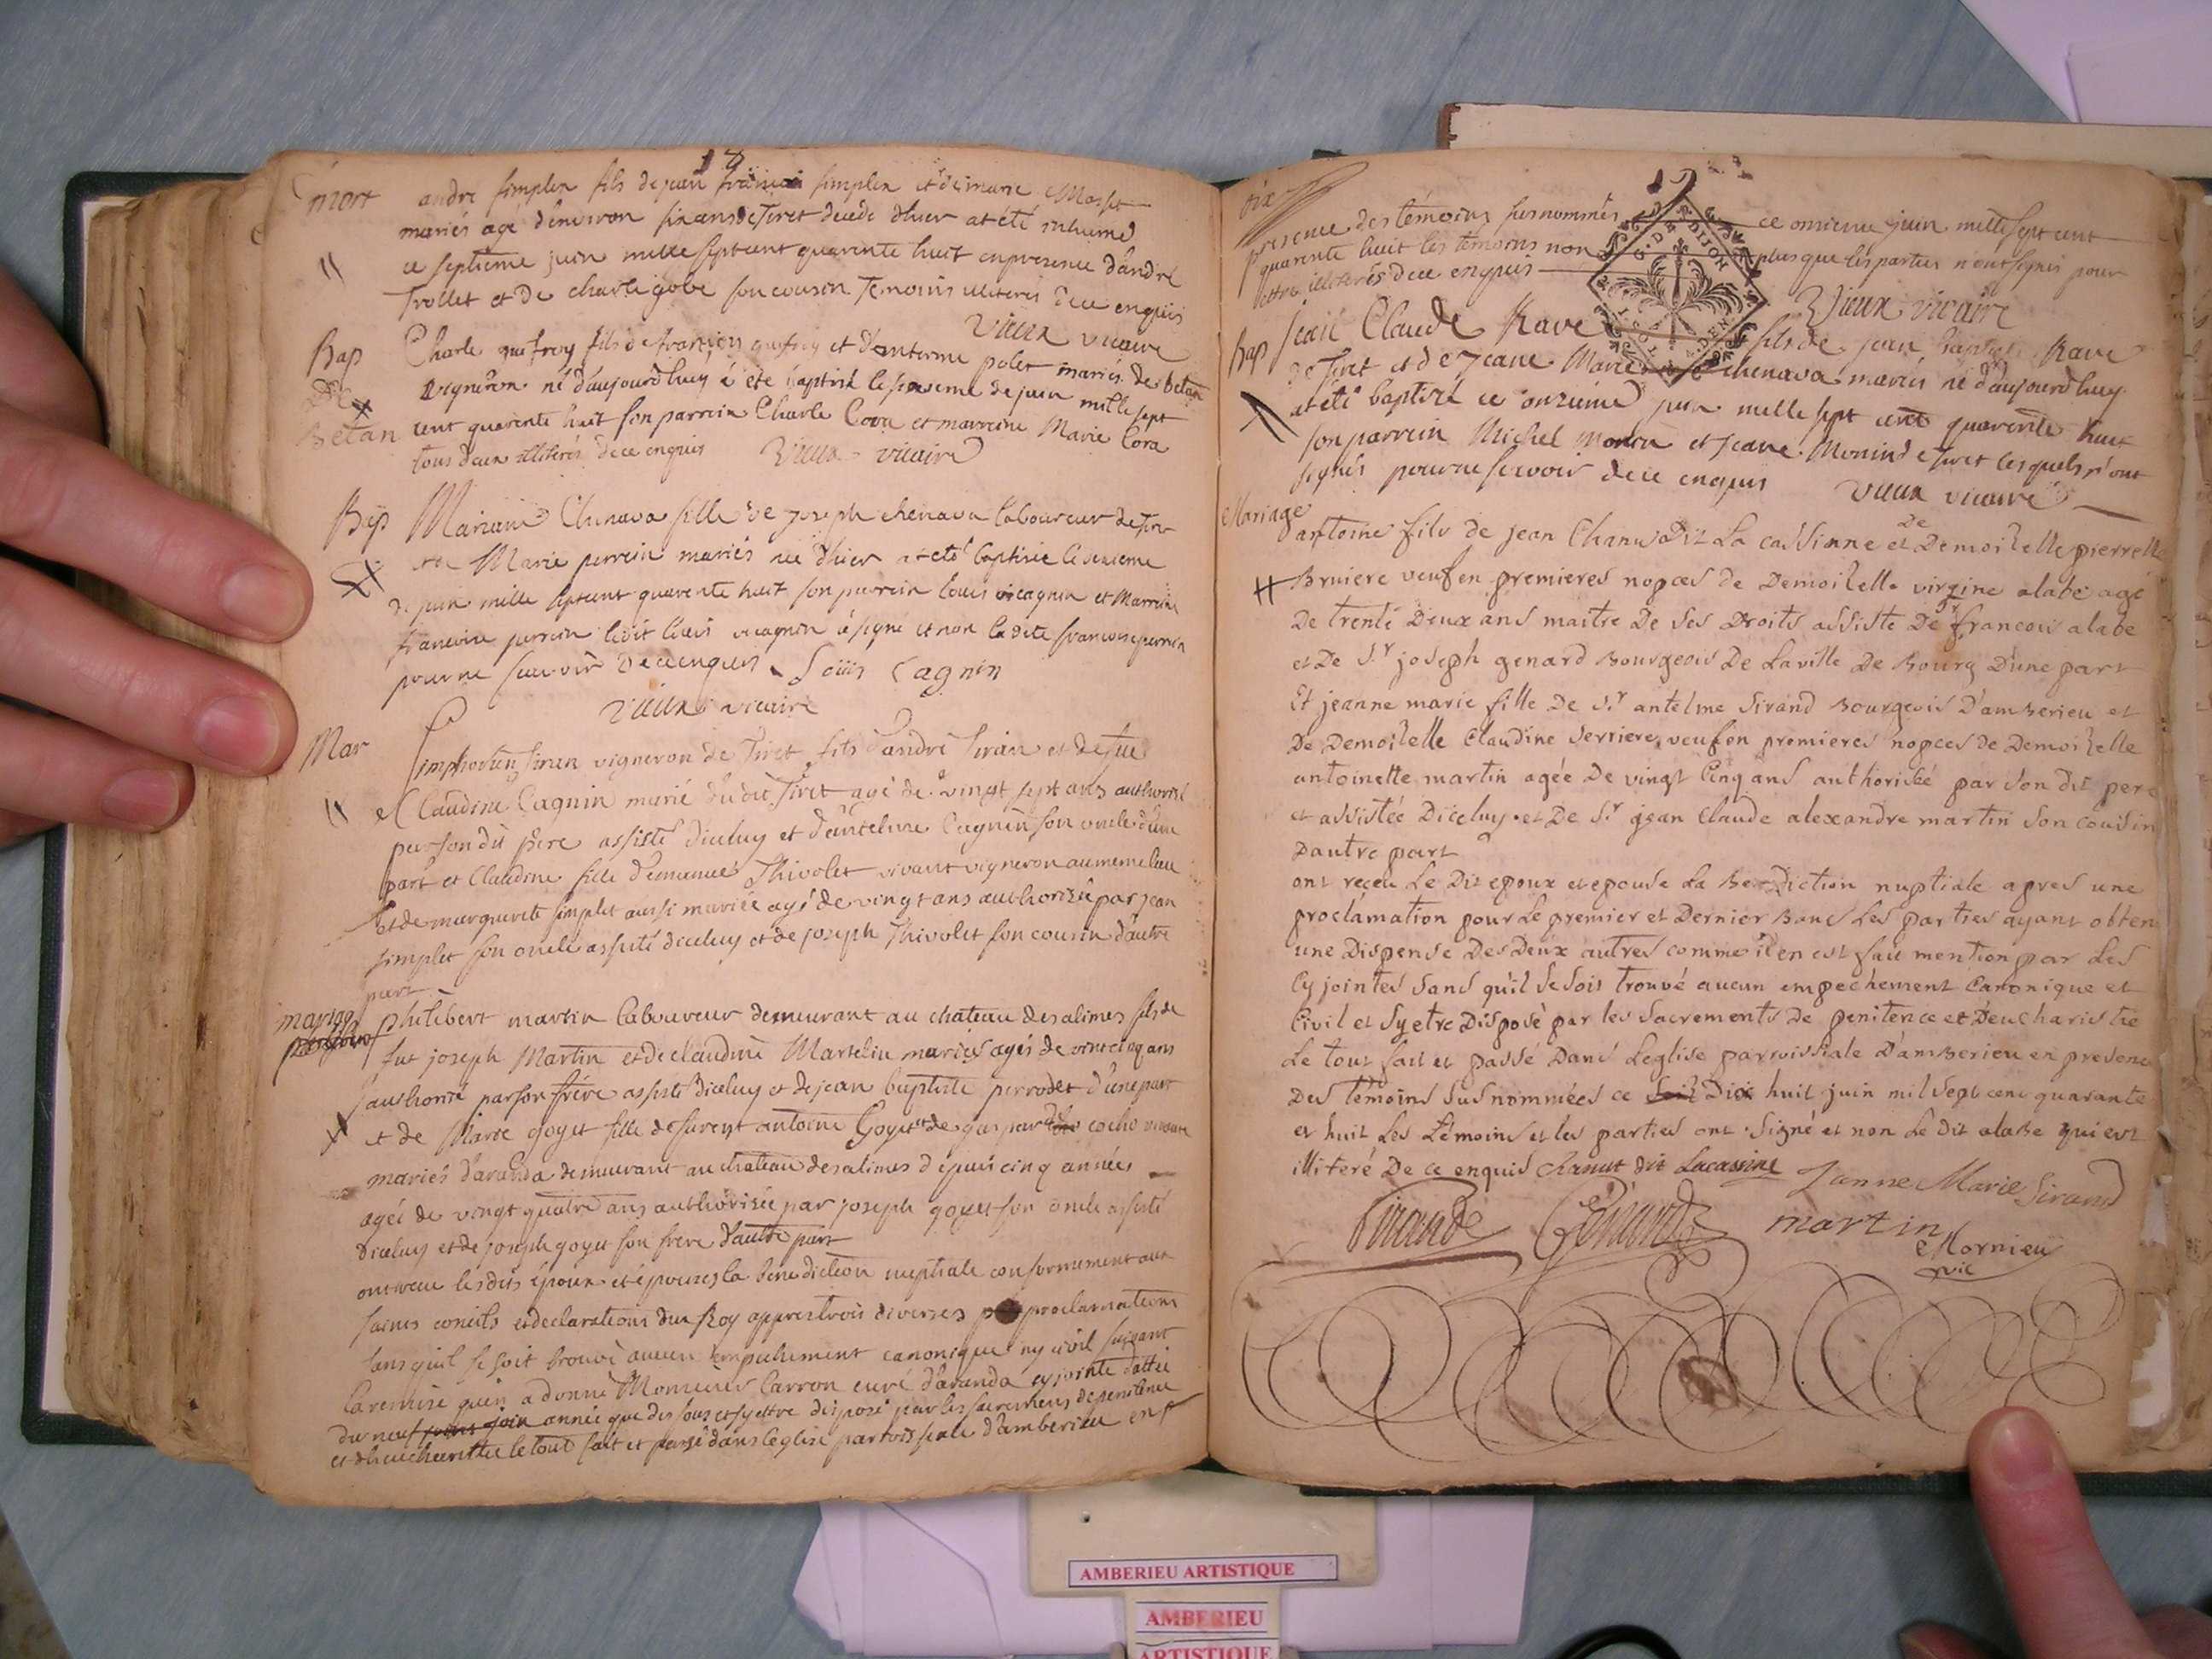 18
mort
andre simplex fils de jean françois simplex et de marie Masset
mariés age d'environ six ans de Tiret decede d'hier at été inhumé
ce septieme juin mille sept cent quarente huit en presence d'andre
Trollet et de charle gobe son cousin Temoins illiteres de ce enquis
Vieux vicaire
Bap
de
Betan
Charle fils de françois et d'anterme polet mariés de betan
vigneron né d'aujourd'huy a été baptisé le de juin mille sept
cent quarente huit son parrein Charle Cora et marreine Marie Cora
tous deux illiterés de ce enquis Vieux vicaire
Bap
Mariane Chenava fille de joseph chenava laboureur de Tiret
et de Marie perrein mariés née d'hier at eté baptisée le seizieme
de juin mille sept cent quarente huit son parrein Louis vicagnin et Marreine
francoise perrein ledit Louis vicagnin a signé et non ladite francoise perrein
pour ne scavoir de ce enquis Louis Cagnin
Vieux vicaire
Mar
simphorien siran vigneron de Tiret fils d'andré siran et de fue
Claudine Cagnin marié dudit Tiret agé de vingt sept ans authorisé
par son dit pere assisté d'iceluy et d'antelme Cagnin son oncle d'une
part et Claudine fille d'emanué Thivolet vivant vigneron au meme lieu
et de marguerite simplet aussi mariée agé de vingt ans authorisée par jean
simplet son oncle assisté d'iceluy et de joseph Thivolet son cousin d'autre
part
mariag
philibert martin laboureur demeurant au chateau des alimes fils de
fut joseph Martin et de claudine Martelin mariés agés de vint cinq ans
authorisé par son frére assisté d'iceluy et de jean baptiste perrodet d'une part
et de Marie goyet fille de furent antoine Goyet et de gaspar cocho vivant
mariés d'aranda demeurant au chateau des alimes depuis cinq années
agée de vingt quatre ans authorisée par joseph goyet son oncle assisté
d'iceluy et de joseph goyet son frere d'autre part
ont receu lesdits époux et épouses la benediction nuptiale conformement aux
saints conciles et declarations du Roy appres trois diverses proclamations
sans qu'il se soit trouvé aucun empechement canonique ny civil suivant
la remise qu'en a donné Monsieur Carron curé d'aranda cy jointe dattée
du neuf juin année que dessous et s'y ettre disposé par les sacremens de penitence
et d'heucheristie le tout fait et passé dans l'eglise parroissiale d'amberieu en p
19
dix
G. DE DIJON
presence des témoins susnommés ce onzieme juin mille sept cent
quarente huit les temoins non plus que les parties n'ont signés pour
ettre illiterés de ce enquis
Vieux vicaire
bap
jean Claude Rave fils de jean baptiste Rave
de Tiret et de jeane Marie chenava mariés né d'aujourd'huy
at été baptisé ce onzieme juin mille sept cent quarente huit
son parrein Michel Monin et jeane Monin de Tiret lesquels n'ont
signés pour ne scavoir de ce enquis Vieux vicaire
Mariage
antoine fils de jean Chanus Dit La cassinne et De Demoiselle pierrette
Bruiere veuf en premieres nopces de Demoiselle virgine alabe agé
De trente Deux ans maitre De ses Droits assisté De sr francois alabe
et De Sr joseph genard Bourgeois De La ville De Bourg D'une part
Et jeanne marie fille De Sr antelme Sirand Bourgeois D'amberieu et
De Demoiselle Claudine Serriere veuf en premieres nopces de Demoiselle
antoinette martin agée De vingt Cinq ans authorisée par son dit pere
et assistée D'iceluy et De Sr jean Claude alexandre martin son cousin
D'autre part
ont receu Le Dit epoux et epouse La Benediction nuptiale apres une
proclamation pour Le premier et Dernier Banc Les parties ayant obten
une Dispense Des Deux autres comme il en est fait mention par Les
Cy jointes Sans qu'il se soit trouvé aucun empechement Canonique et
Civil et S'y etre Disposé par les Sacrements De penitence et D'eucharistie
Le tout fait et passé Dans L'eglise parroissiale D'amberieu en presence
Des temoins Susnommées ce Dix huit juin mil sept cent quarante
et huit Les témoins et les parties ont Signé et non Le Dit alabe qui est
illiteré De ce enquis Chanut dit Lacassine Janne Marie Sirand
Siraude Genard martin
Mornieu
vic
AMBERIEU ARTISTIQUE
AMBERIEU
ARTISTIQUE